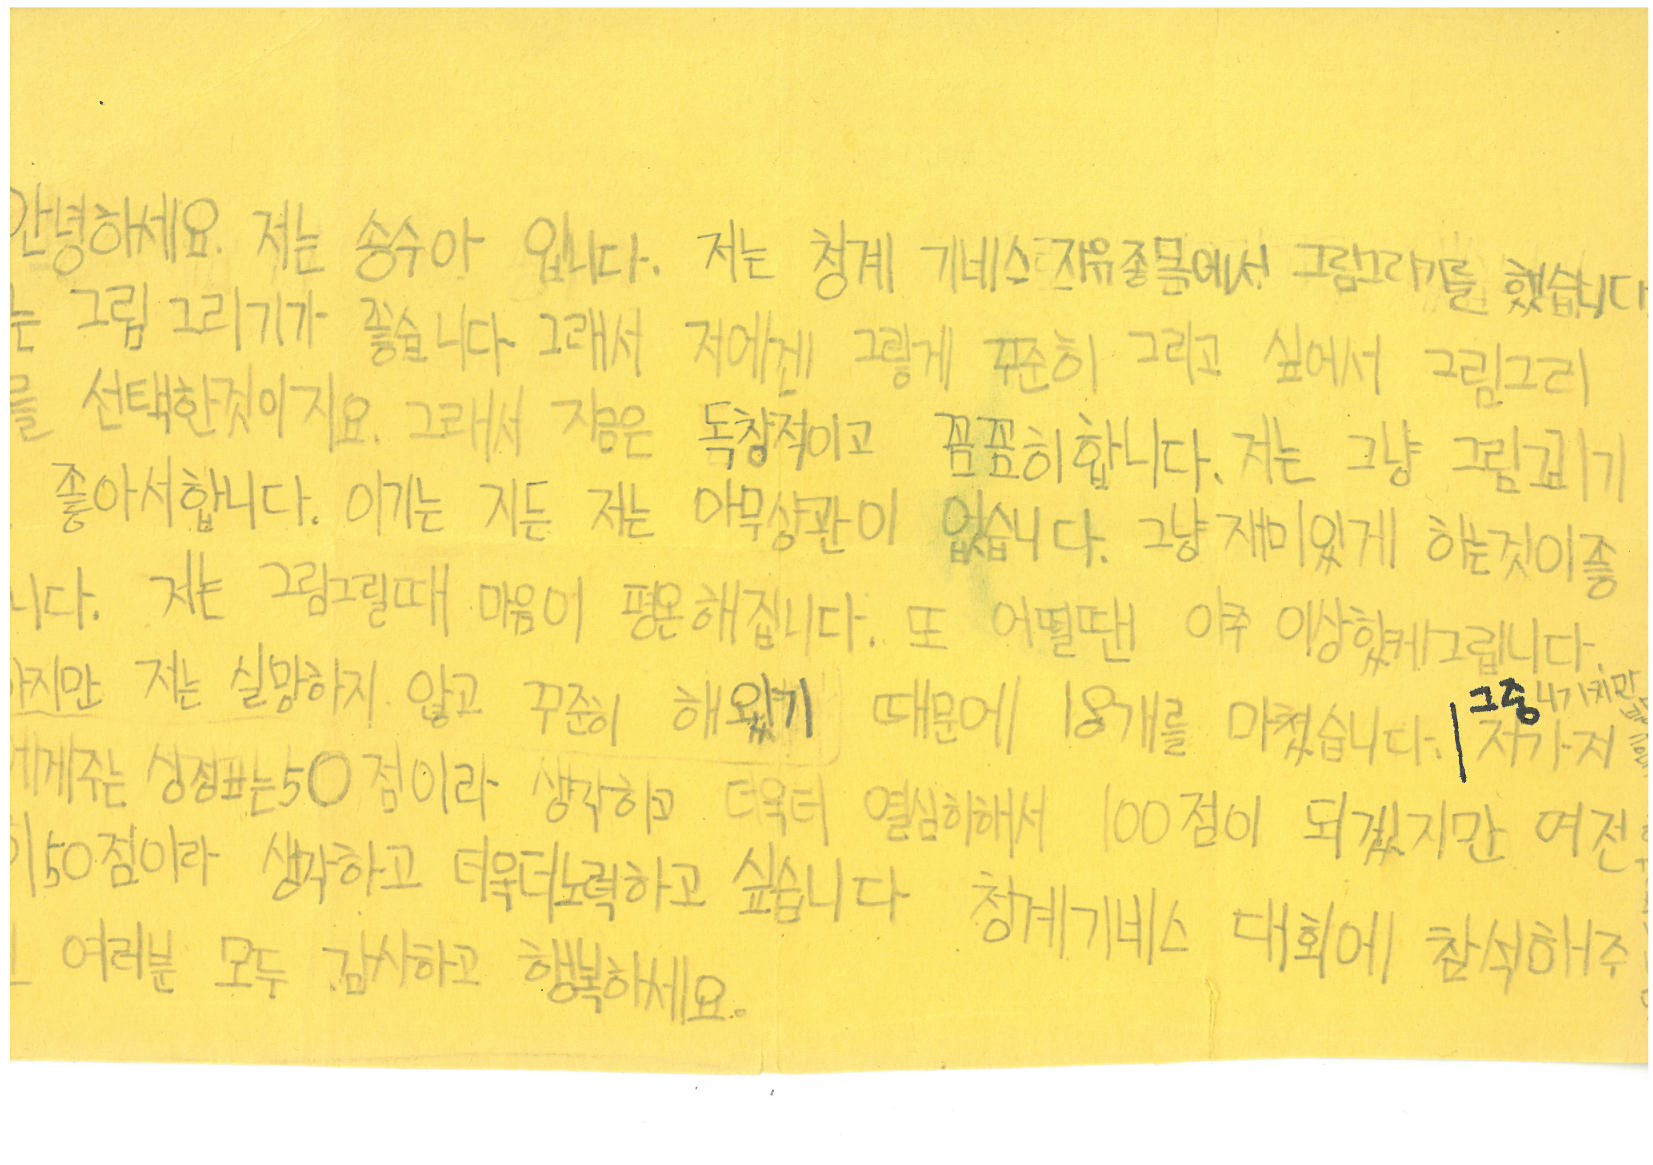 안녕하세요. 저는 송수아 입니다. 저는 청계 기네스 자유종목에서 그림그리기를 했습니다
는 그림 그리기가 좋습니다 그래서 저에겐 그렇게 꾸준히 그리고 싶어서 그림그리
를 선택한것이지요. 그래서 지금은 독창적이고 꼼꼼히합니다. 저는 그냥 그림그리기
좋아서합니다. 이기든 지든 저는 아무상관이 없습니다. 그냥 재미있게 하는것이좋
니다. 저는 그림그릴때 마음이 평온해집니다. 또 어떨땐 아주 이상했케그립니다.
하지만 저는 실망하지 않고 꾸준히 해왔기 때문에 18개를 마쳤습니다. 저가저
그중
에게주는 성정표는50점이라 생각하고 더욱더 열심히해서 100점이 되겠지만 여전
히50점이라 생각하고 더욱더노력하고 싶습니다 청계기네스 대회에 참석해주
여러분 모두 감사하고 행복하세요.